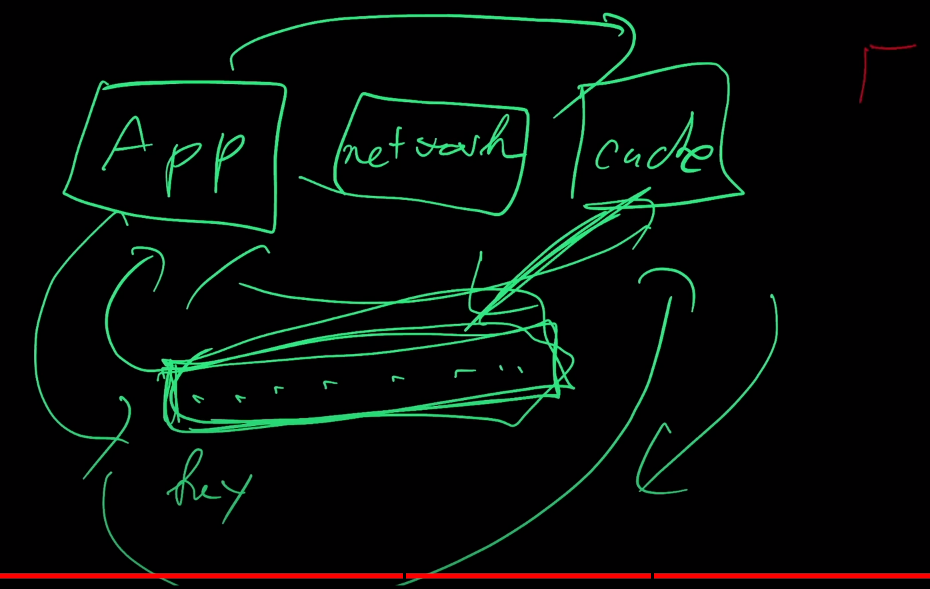 App network cache
key